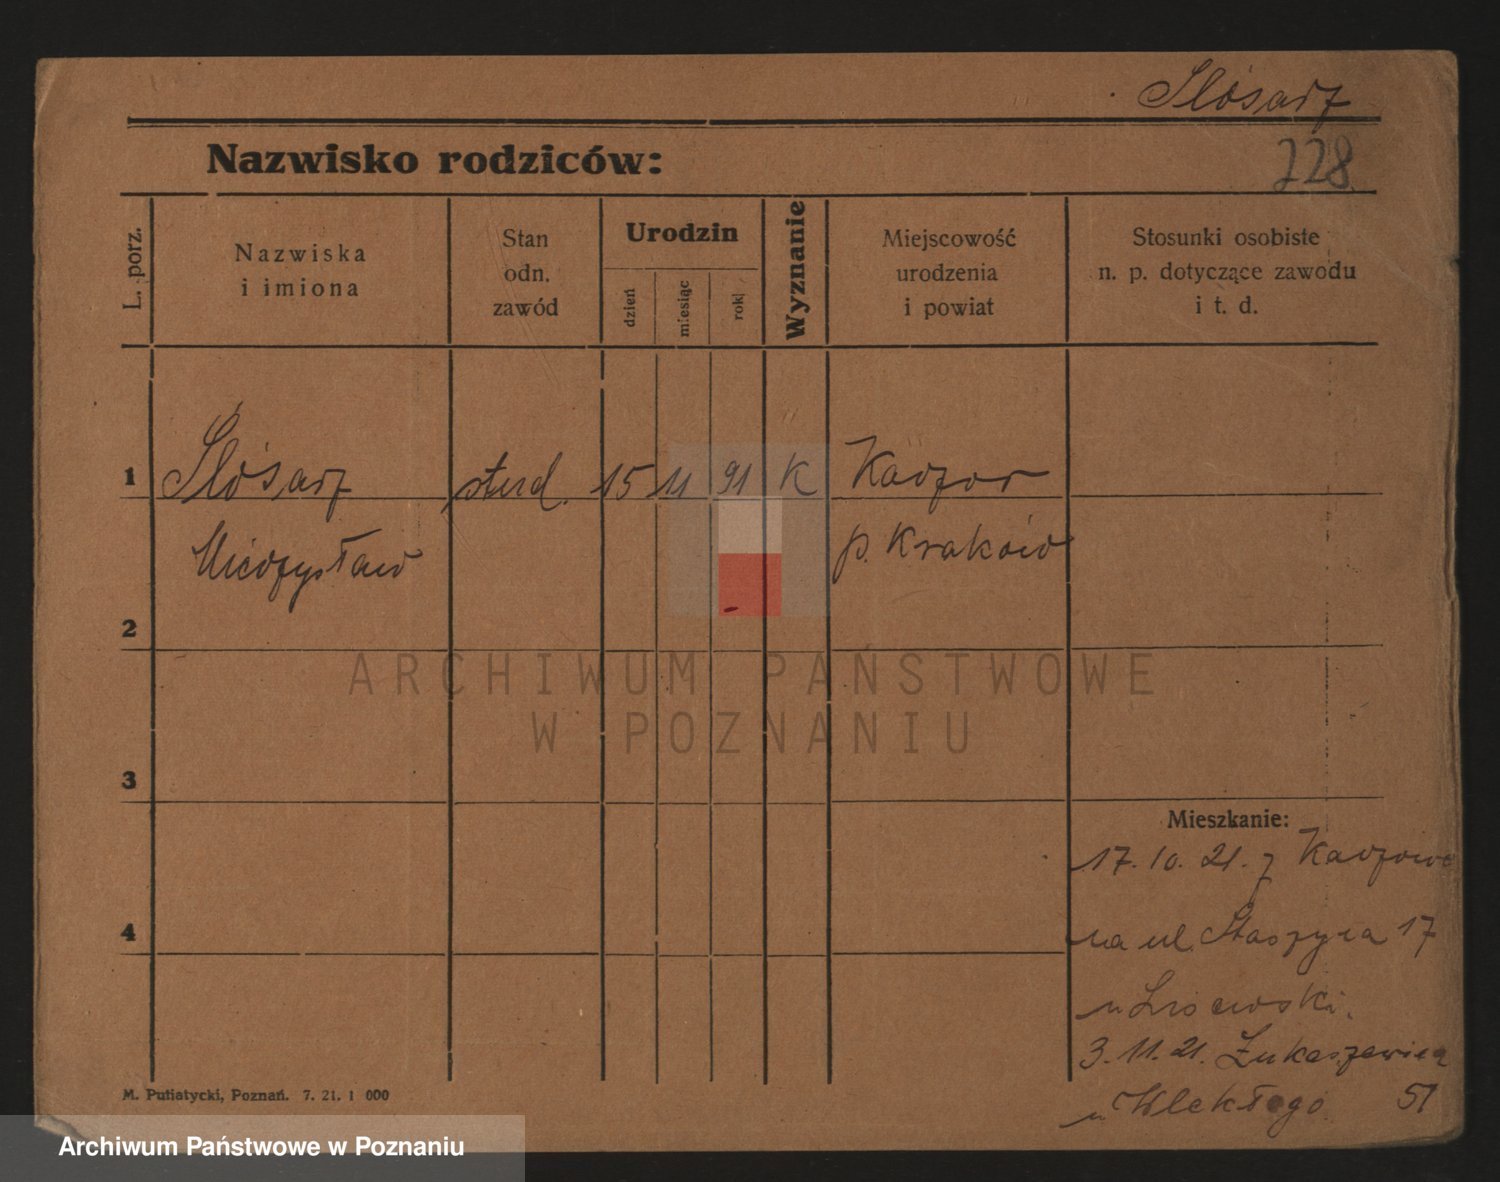 Ślósarz
228
Nazwisko rodziców:
L. porz.
Nazwiska
i imiona
Stan
odn.
zawód
Urodzin
dzień
miesiąc
rok
Wyznanie
Miejscowość
urodzenia
i powiat
Stosunki osobiste
n. p. dotyczące zawodu
i t. d.
1 Ślósarz stud. 15 11 91 K Kaczor
Mieczysław p. Kraków
2
3
4
ARCHIWUM PAŃSTWOWE
W POZNANIU
Mieszkanie:
17. 10. 21. z
na ul. Staszyca 17
u
3. 11. 21. Łukaszewicza
u 51
M. Putiatycki, Poznań. 7. 21. 1 000
Archiwum Państwowe w Poznaniu